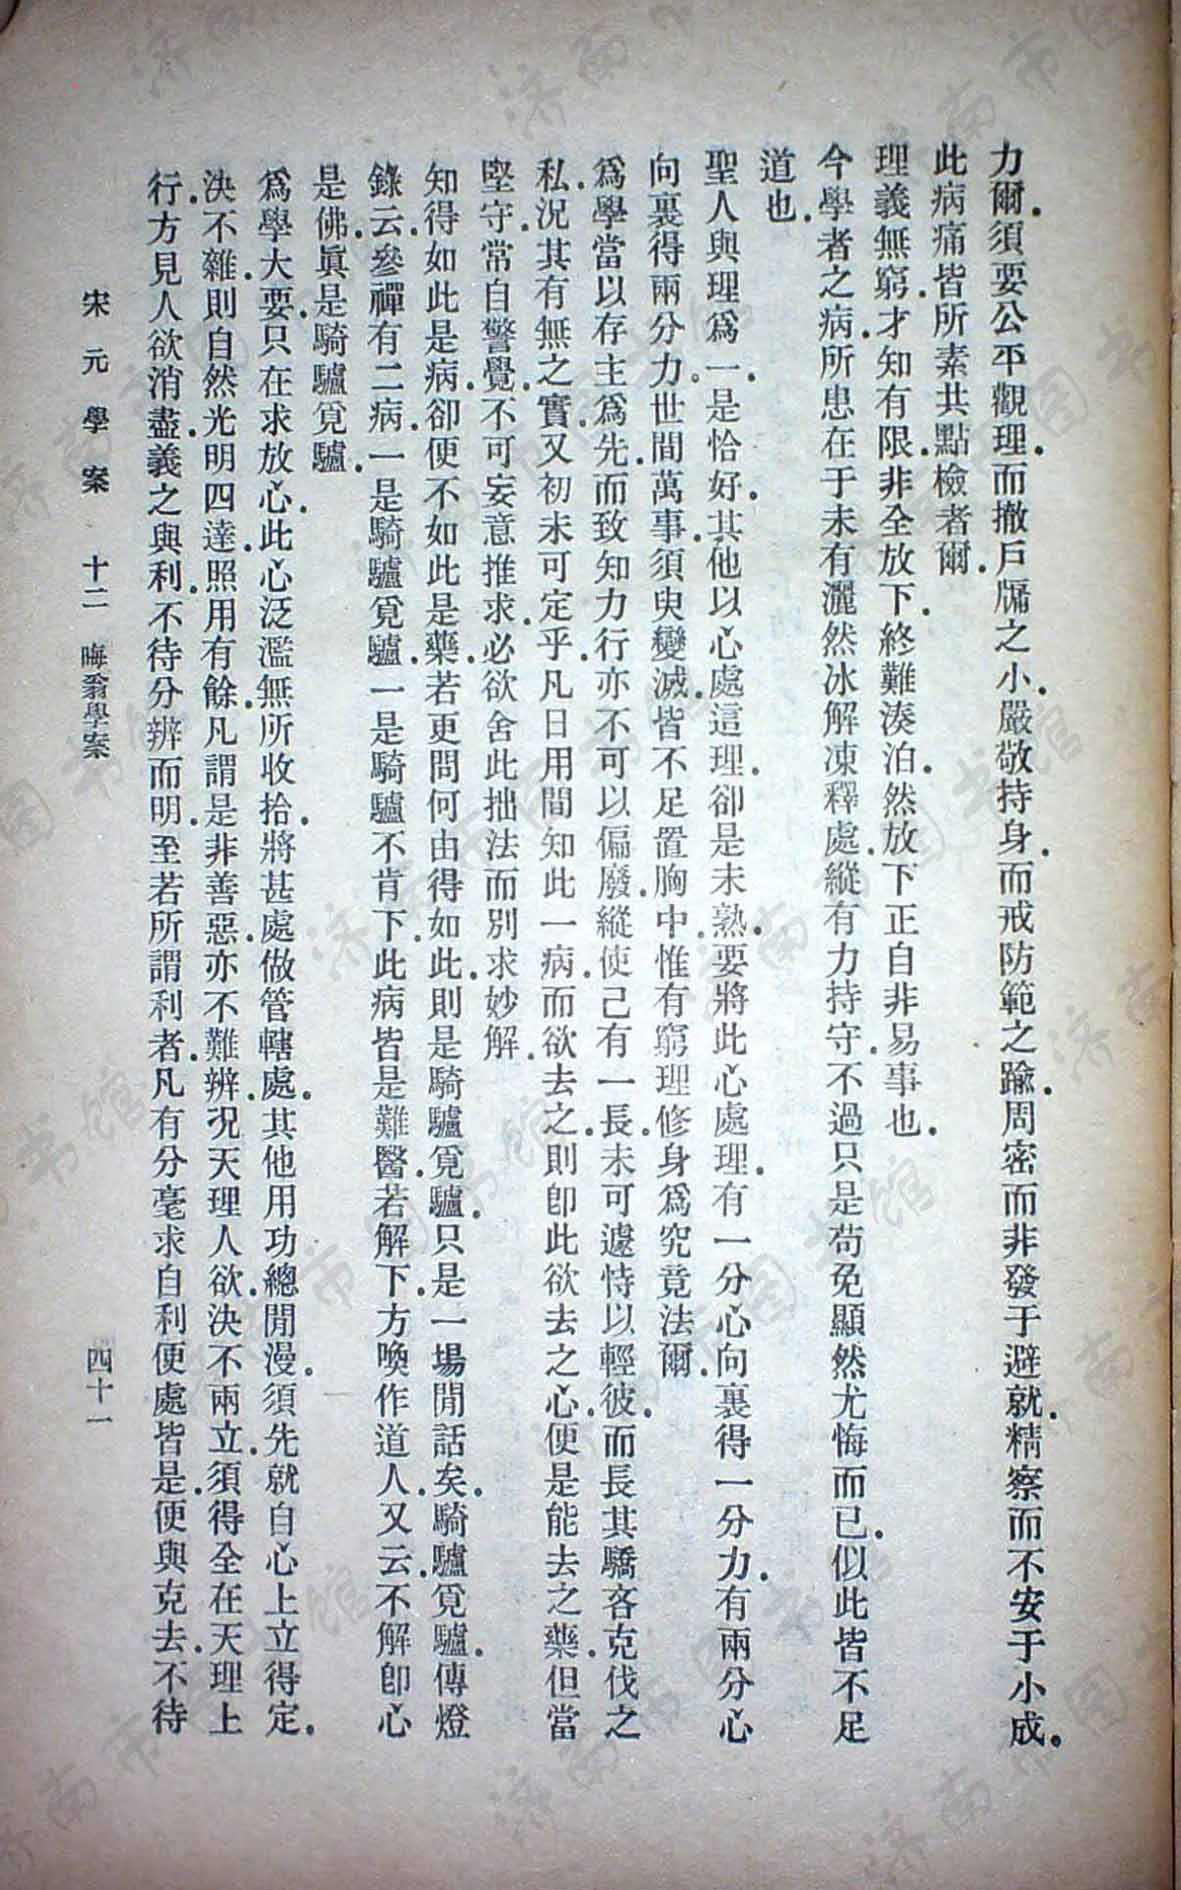 力爾.須要公平觀理.而撤戶牖之小.嚴敬持身.而戒防範之踰.周密而非發于避就.精察而不安于小成.
此病痛.皆所素共點檢者爾.
理義無窮.才知有限.非全放下.終難湊泊.然放下正自非易事也.
今學者之病.所患在于未有灑然冰解凍釋處.縱有力持守.不過只是苟免顯然尤悔而已.似此皆不足
道也.
聖人與理爲一.是恰好.其他以心處這理.卻是未熟.要將此心處理.有一分心向裏得一分力.有兩分心
向裏得兩分力。世間萬事.須臾變滅.皆不足置胸中.惟有窮理修身爲究竟法爾.
爲學當以存主爲先.而致知力行.亦不可以偏廢.縱使己有一長.未可遽恃以輕彼.而長其驕吝克伐之
私.況其有無之實.又初未可定乎.凡日用間知此一病.而欲去之.則卽此欲去之心.便是能去之藥.但當
堅守.常自警覺.不可妄意推求.必欲舍此拙法而別求妙解.
知得如此是病.卻便不如此是藥.若更問何由得如此.則是騎驢覓驢.只是一場閒話矣.騎驢覓驢.傳燈
錄云.參禪有二病.一是騎驢覓驢.一是騎驢不肯下.此病皆是難醫.若解下.方喚作道人.又云.不解卽心
是佛.眞是騎驢覓驢.
爲學大要.只在求放心.此心泛濫.無所收拾.將甚處做管轄處.其他用功.總閒漫.須先就自心上立得定.
決不雜.則自然光明四達.照用有餘.凡謂是非善惡.亦不難辨.況天理人欲.決不兩立.須得全在天理上
行.方見人欲消盡.義之與利.不待分辨而明.至若所謂利者.凡有分毫求自利便處皆是.便與克去.不待
宋元學案 十二 晦翁學案 四十一